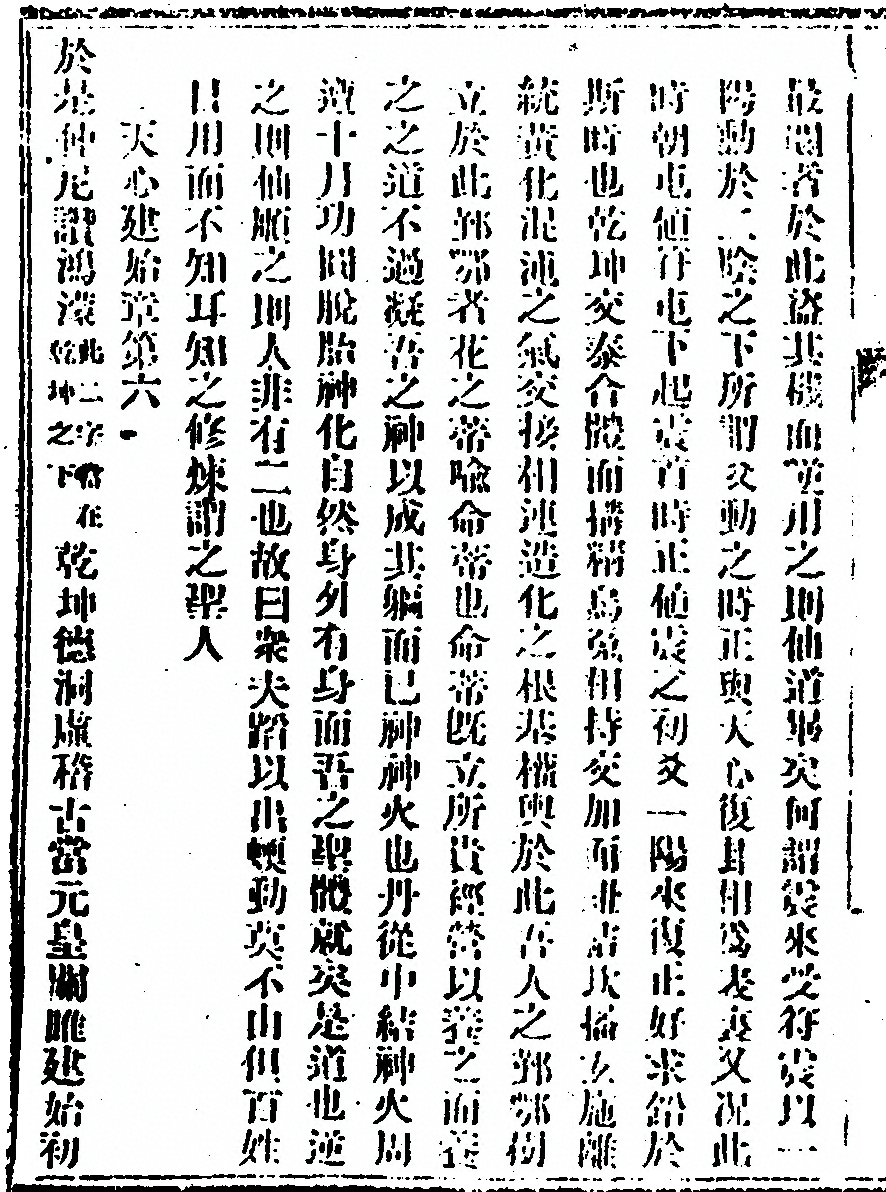 最聞者於此盜其機而逆用之則仙道畢矣何謂震來受符震以一
陽動於二陰之下所謂爻動之時正與天心復卦相為表裏又況此
時朝屯值符屯下起震首時正值震之初爻一陽來復正好求鉛於
斯時也乾坤交泰合體而搆精烏兔相持交加而眷戀坎播玄施離
統黃化混沌之氣交接相連造化之根基權輿於此吾人之鄞鄂樹
立於此鄞鄂者花之蒂喻命蒂也命蒂既立所貴經營以養之而養
之之道不過凝吾之神以成其軀而已神神火也丹從中結神火周
遭十月功圓脫胎神化自然身外有身而吾之聖軀就矣是道也逆
之則仙順之則人非有二也故曰衆夫蹈以出蝡動莫不由但百姓
日用而不知耳知之修煉謂之聖人
天心建始章第六
於是仲尼讚鴻濛此二字當在乾坤之下乾坤德洞虛稽古當元皇關雎建始初